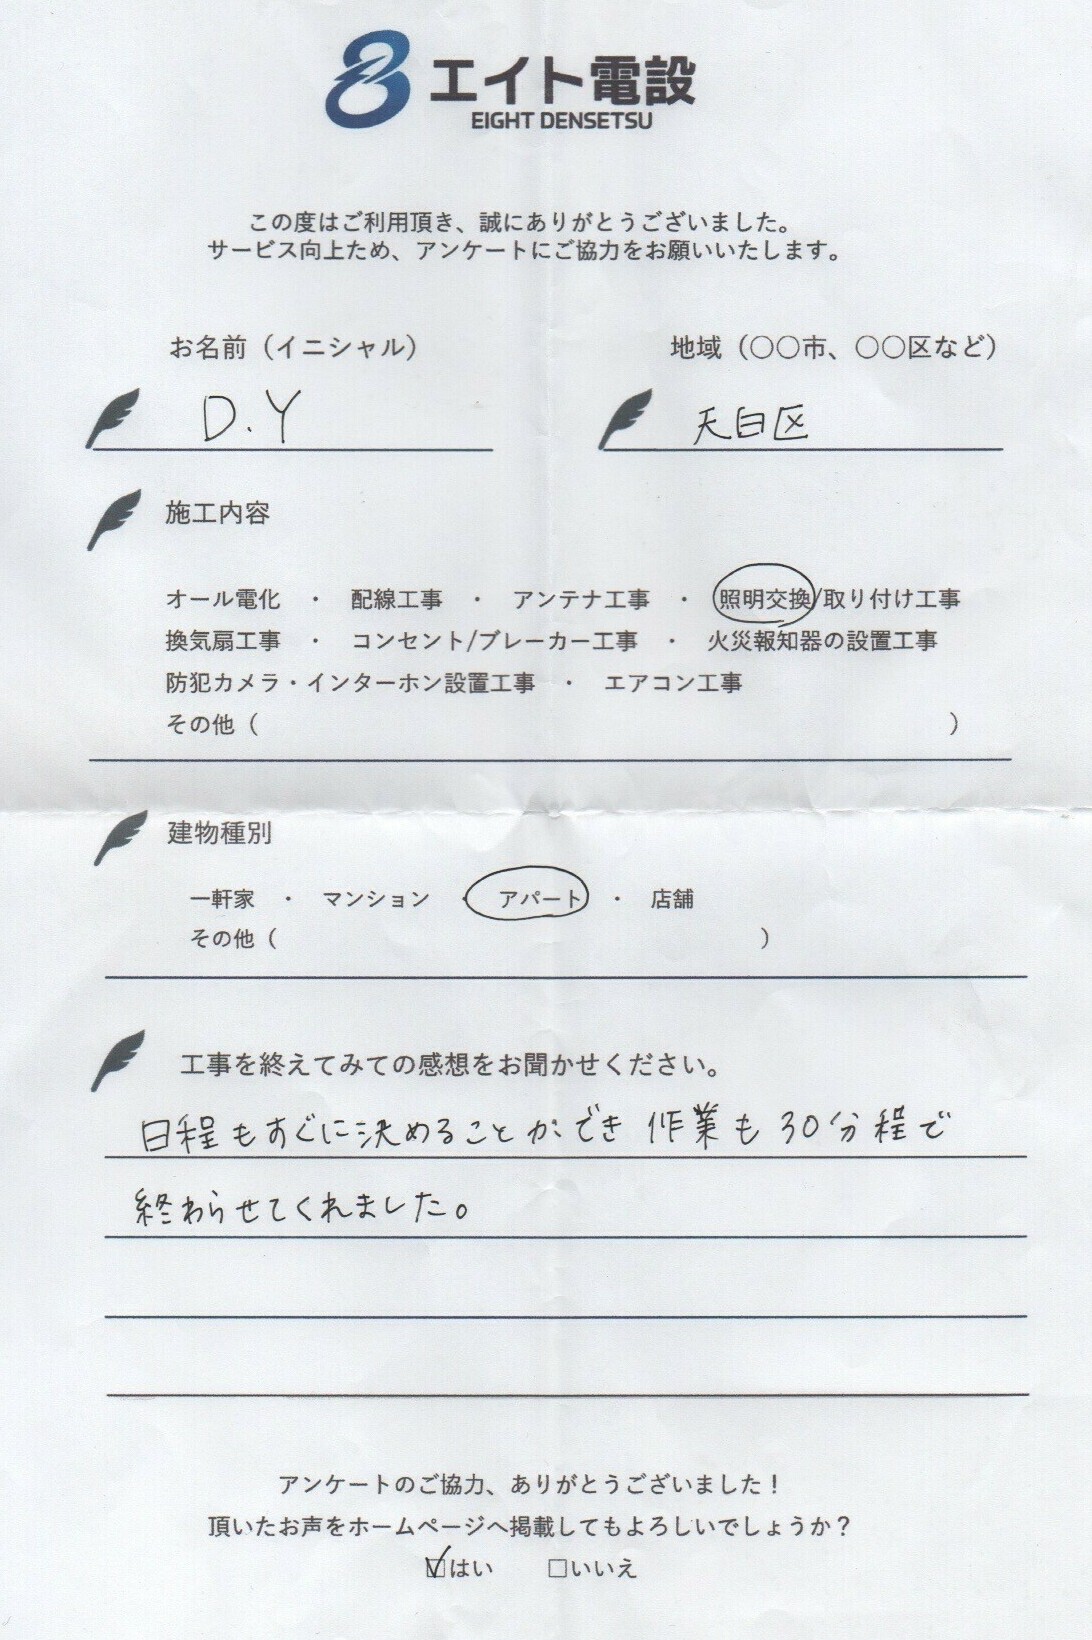 エイト電設
EIGHT DENSETSU
この度はご利用頂き、誠にありがとうございました。
サービス向上ため、アンケートにご協力をお願いいたします。
お名前（イニシャル）
地域（〇〇市、〇〇区など）
D.Y
天白区
施工内容
オール電化　・　配線工事　・　アンテナ工事　・　照明交換/取り付け工事
換気扇工事　・　コンセント/ブレーカー工事　・　火災報知器の設置工事
防犯カメラ・インターホン設置工事　・　エアコン工事
その他（　　　　　　）
建物種別
一軒家　・　マンション　・　アパート　・　店舗
その他（　　　　　　）
工事を終えてみての感想をお聞かせください。
日程もすぐに決めることができ 作業も30分程で
終わらせてくれました。
アンケートのご協力、ありがとうございました！
頂いたお声をホームページへ掲載してもよろしいでしょうか？
☑はい　□いいえ